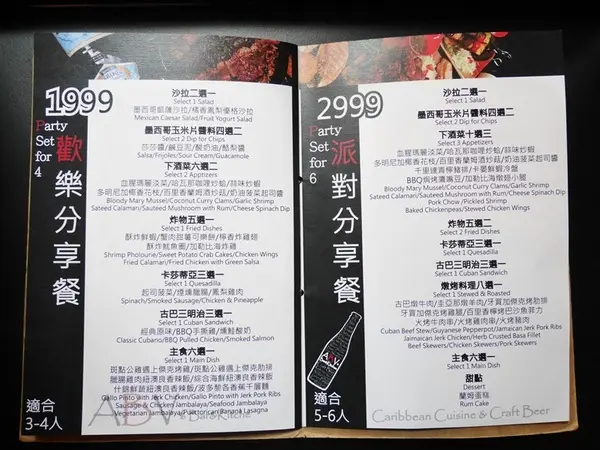 1999
Party
Set
for
4
歡樂分享餐
適合
3-4人
沙拉二選一
Select 1 Salad
墨西哥凱薩沙拉/檳香鳳梨優格沙拉
Mexican Caesar Salad/Fruit Yogurt Salad
墨西哥玉米片醬料四選二
Select 2 Dip for Chips
莎莎醬/鹹豆泥/酸奶油/酪梨醬
Salsa/Frijoles/Sour Cream/Guacamole
下酒菜六選二
Select 2 Appetizers
血腥瑪麗淡菜/哈瓦那咖哩炒蛤/蒜味炒蝦
多明尼加椰香花枝/百里香蘭姆酒炒菇/奶油菠菜起司醬
Bloody Mary Mussel/Coconut Curry Clams/Garlic Shrimp
Sateed Calamari/Sauteed Mushroom with Rum/Cheese Spinach Dip
炸物五選一
Select 1 Fried Dishes
酥炸鮮蝦/蟹肉甜薯可樂餅/檸香炸雞翅
酥炸魷魚圈/加勒比海炸雞
Shrimp Pholourie/Sweet Potato Crab Cakes/Chicken Wings
Fried Calamari/Fried Chicken with Green Salsa
卡莎蒂亞三選一
Select 1 Quesadilla
起司菠菜/煙燻臘腸/鳳梨雞肉
Spinach/Smoked Sausage/Chicken & Pineapple
古巴三明治三選一
Select 1 Cuban Sandwich
經典原味/BBQ手撕雞/燻鮭酸奶
Classic Cubano/BBQ Pulled Chicken/Smoked Salmon
主食六選一
Select 1 Main Dish
斑點公雞飯遇上傑克烤雞/斑點公雞遇上傑克肋排
臘腸雞肉紐澳良香辣飯/綜合海鮮紐澳良香辣飯
什錦鮮蔬紐澳良香辣飯/波多黎各香蕉千層麵
Gallo Pinto with Jerk Chicken/Gallo Pinto with Jerk Pork Ribs
Sausage & Chicken Jambalaya/Seafood Jambalaya
Vegetarian Jambalaya/Puertorican Banana Lasagna
ABV
Bar&Kitchen
2999
Party
Set
for
6
派對分享餐
ABV
適合
5-6人
沙拉二選一
Select 1 Salad
墨西哥玉米片醬料四選二
Select 2 Dip for Chips
下酒菜十選三
Select 3 Appetizers
血腥瑪麗淡菜/哈瓦那咖哩炒蛤/蒜味炒蝦
多明尼加椰香花枝/百里香蘭姆酒炒菇/奶油菠菜起司醬
千里達青檸豬排/卡晏鮮蝦冷盤
BBQ焗烤鷹嘴豆/加勒比海燉翅小腿
Bloody Mary Mussel/Coconut Curry Clams/Garlic Shrimp
Sateed Calamari/Sauteed Mushroom with Rum/Cheese Spinach Dip
Pork Chow/Pickled Shrimp
Baked Chickenpeas/Stewed Chicken Wings
炸物五選一
Select 2 Fried Dishes
卡莎蒂亞三選一
Select 1 Quesadilla
古巴三明治三選一
Select 1 Cuban Sandwich
燉烤料理八選一
Select 1 Stewed & Roasted
古巴燉牛肉/圭亞那燉羊肉/牙買加傑克烤肋排
牙買加傑克烤雞腿/百里香檸烤巴沙魚菲力
火烤牛肉串/火烤雞肉串/火烤豬肉
Cuban Beef Stew/Guyanese Pepperpot/Jamaican Jerk Pork Ribs
Jaimaican Jerk Chicken/Herb Crusted Basa Fillet
Beef Skewers/Chicken Skewers/Pork Skewers
主食六選一
Select 1 Main Dish
甜點
Dessert
蘭姆蛋糕
Rum Cake
Caribbean Cuisine & Craft Beer